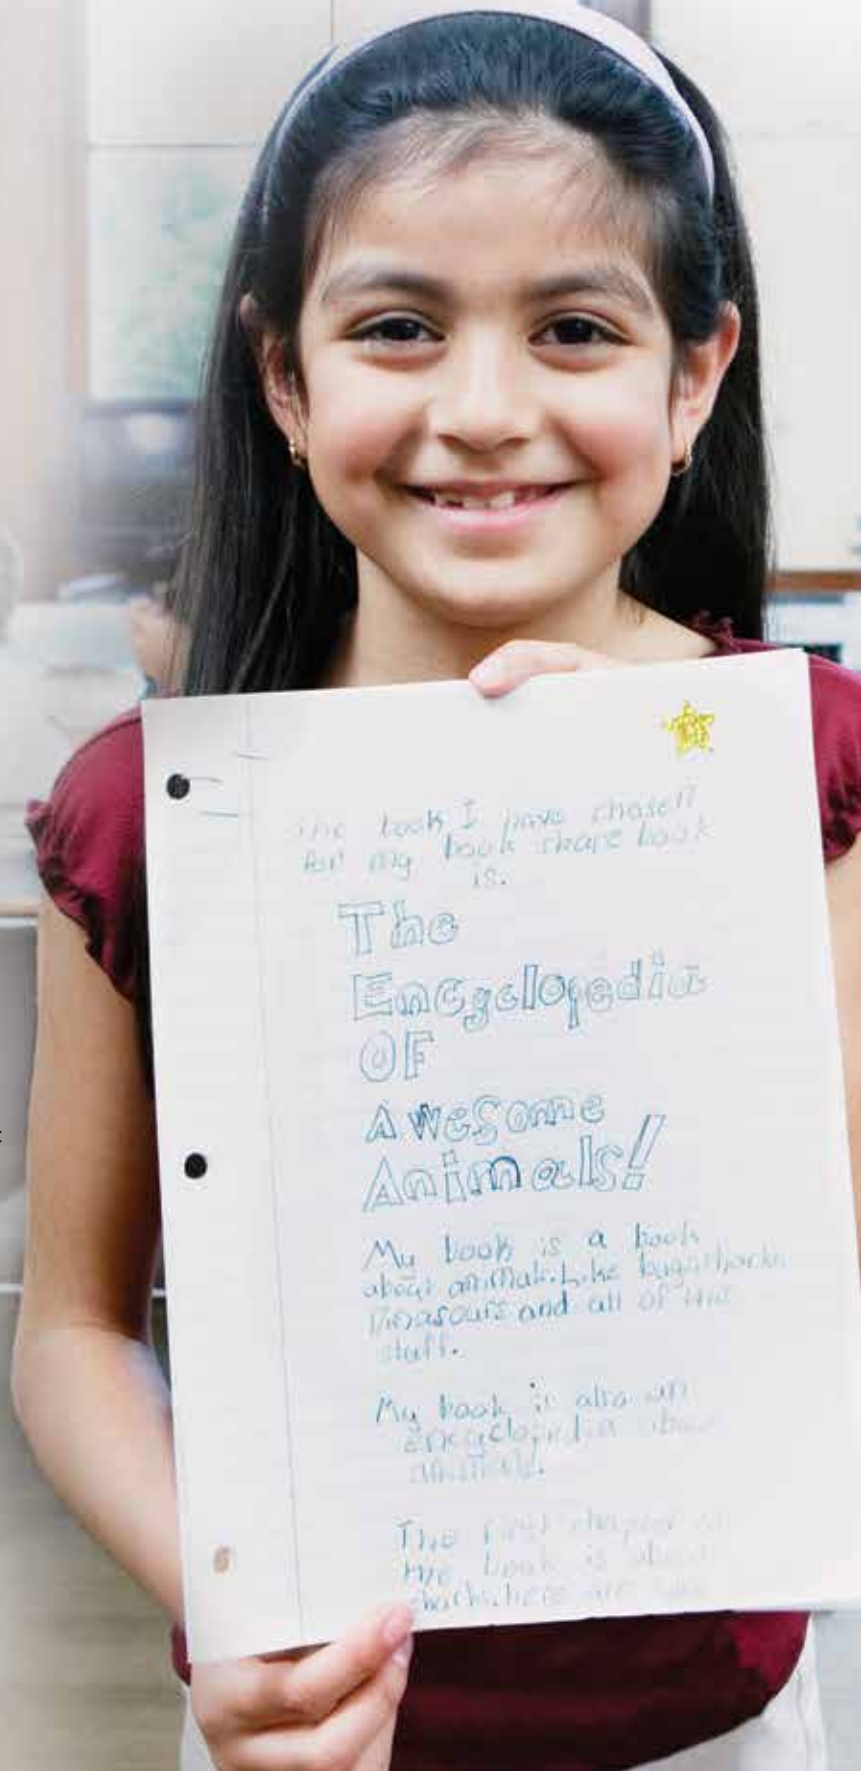 The book I have chosen
for my book share book
is.
The
Encyclopedia
OF
Awesome
Animals!
My book is a book
about animals. Like bugs sharks
Dinasours and all of this
stuff.
My book is also an
Encyclopedia about
animals.
The first chapter of
the book is about
sharks. here are some